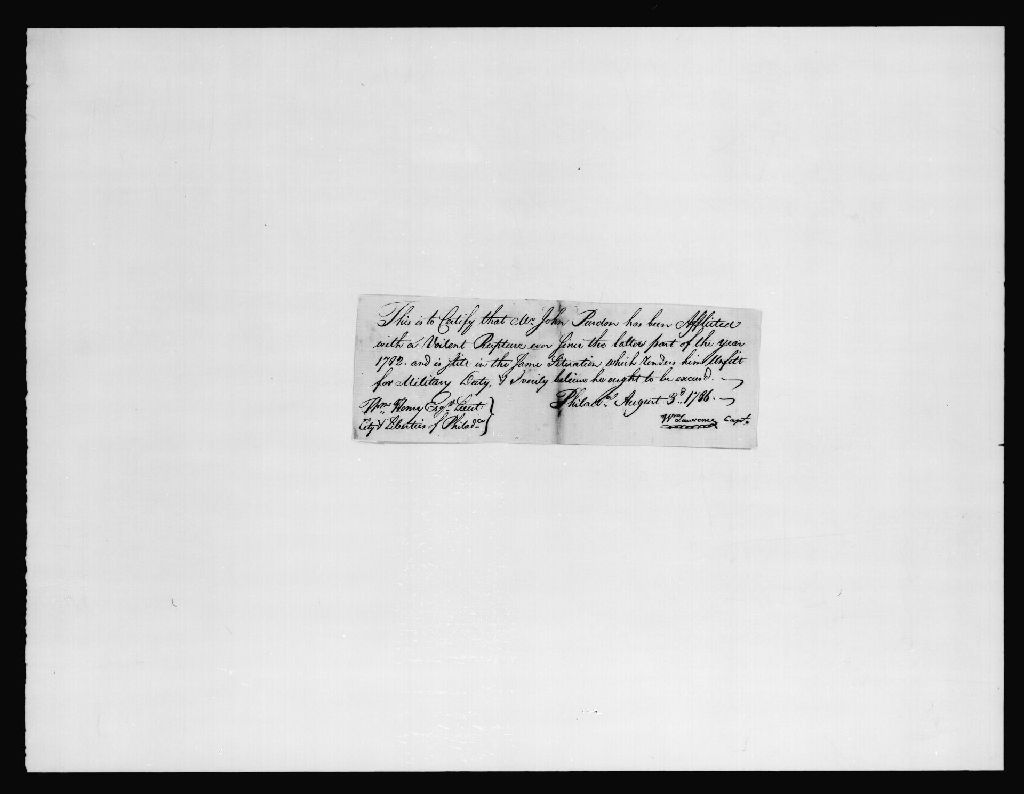 This is to Certify that Mr. John Purdon has been Afflicted
with a Voilent Rupture ever Since the latter part of the year
1782. and is still in the Same Situation which renders him Unfitt
for Military Duty, & I verily believe he ought to be excus'd.
Philada. August 3d. 1786.
Wm. Henry Esqr. Lieut.
City & Liberties of Philada.
Wm Lawrence Capt.